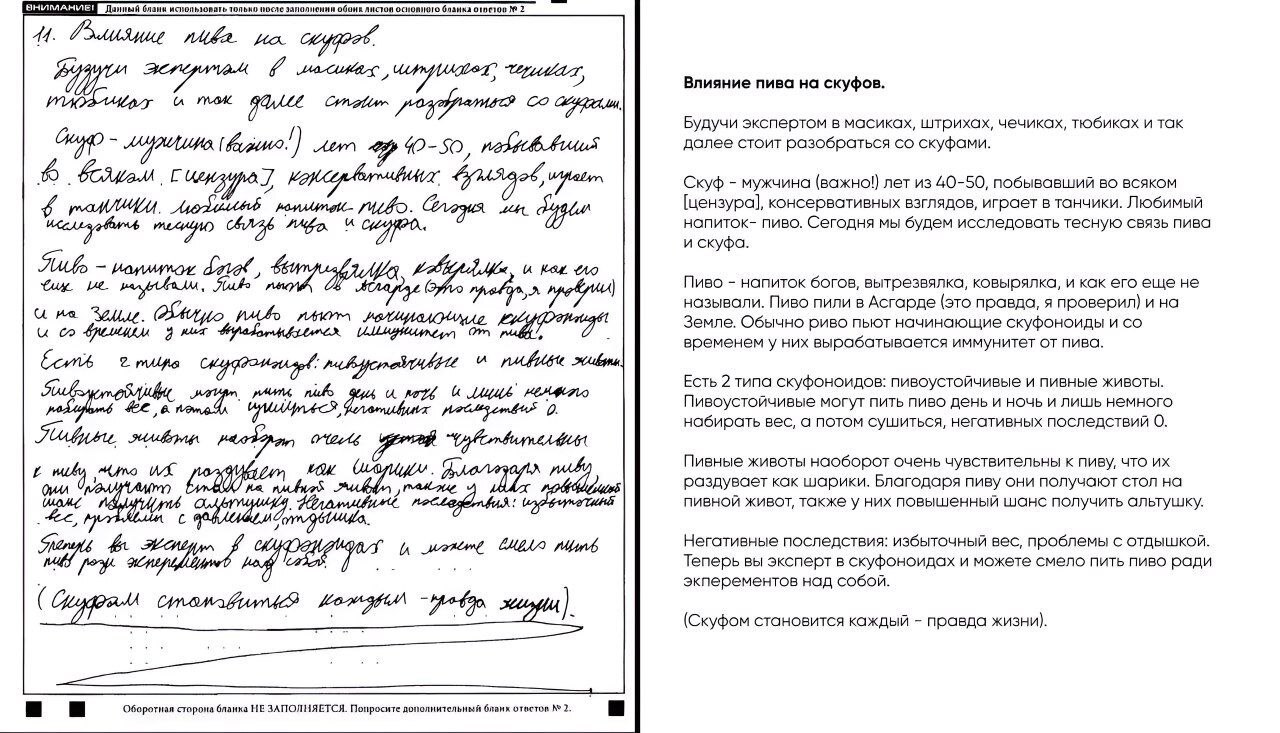 ВНИМАНИЕ! Данный бланк использовать только после заполнения обоих листов основного бланка ответов № 2
11. Влияние пива на скуфов.
Будучи экспертом в масиках, штрихах, чечиках,
тюбиках и так далее стоит разобраться со скуфами.
Скуф - мужчина (важно!) лет 40-50, побывавший
во всяком [цензура], консервативных взглядов, играет
в танчики. Любимый напиток- пиво. Сегодня мы будем
исследовать тесную связь пива и скуфа.
Пиво - напиток богов, вытрезвялка, ковырялка, и как его
еще не называли. Пиво пили в Асгарде (это правда, я проверил)
и на Земле. Обычно пиво пьют начинающие скуфоноиды
и со временем у них вырабатывается иммунитет от пива.
Есть 2 типа скуфоноидов: пивоустойчивые и пивные животы.
Пивоустойчивые могут пить пиво день и ночь и лишь немного
набирать вес, а потом сушиться, негативных последствий 0.
Пивные животы наоборот очень чувствительны
к пиву, что их раздувает как шарики. Благодаря пиву
они получают стол на пивной живот, также у них повышенный
шанс получить альтушку. Негативные последствия: избыточный
вес, проблемы с давлением отдышка.
Теперь вы эксперт в скуфоноидах и можете смело пить
пиво ради эксперементов над собой.
(Скуфом становиться каждым - правда жизни).
Оборотная сторона бланка НЕ ЗАПОЛНЯЕТСЯ. Попросите дополнительный бланк ответов № 2.
Влияние пива на скуфов.
Будучи экспертом в масиках, штрихах, чечиках, тюбиках и так
далее стоит разобраться со скуфами.
Скуф - мужчина (важно!) лет из 40-50, побывавший во всяком
[цензура], консервативных взглядов, играет в танчики. Любимый
напиток- пиво. Сегодня мы будем исследовать тесную связь пива
и скуфа-
Пиво - напиток богов, вытрезвялка, ковырялка, и как его еще не
называли. Пиво пили в Асгарде (это правда, я проверил) и на
Земле. Обычно риво пьют начинающие скуфоноиды и со
временем у них вырабатывается иммунитет от пива.
Есть 2 типа скуфоноидов: пивоустойчивые и пивные животы.
Пивоустойчивые могут пить пиво день и ночь и лишь немного
набирать вес, а потом сушиться, негативных последствий 0.
Пивные животы наоборот очень чувствительны к пиву, что их
раздувает как шарики. Благодаря пиву они получают стол на
пивной живот, также у них повышенный шанс получить альтушку.
Негативные последствия: избыточный вес, проблемы с отдышкой.
Теперь вы эксперт в скуфоноидах и можете смело пить пиво ради
экперементов над собой.
(Скуфом становится каждый - правда жизни).